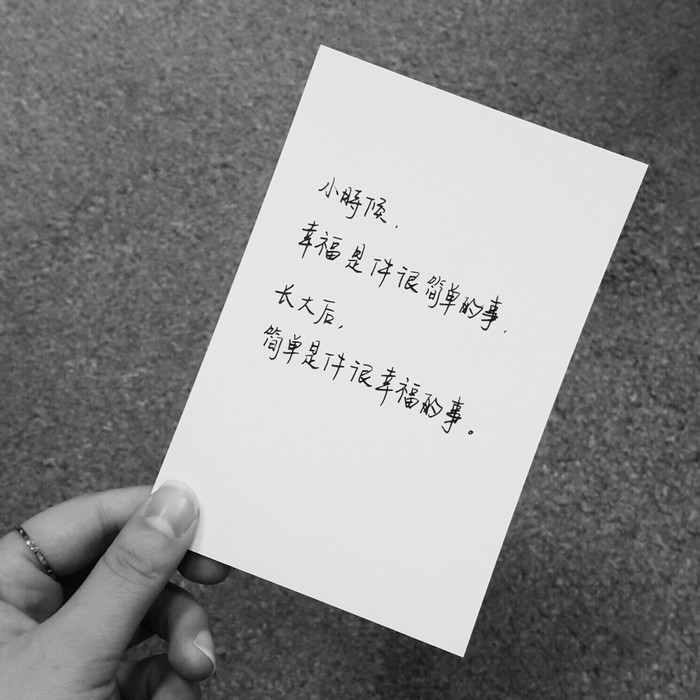 小時候,
幸福是件很简单的事,
长大后,
简单是件很幸福的事。